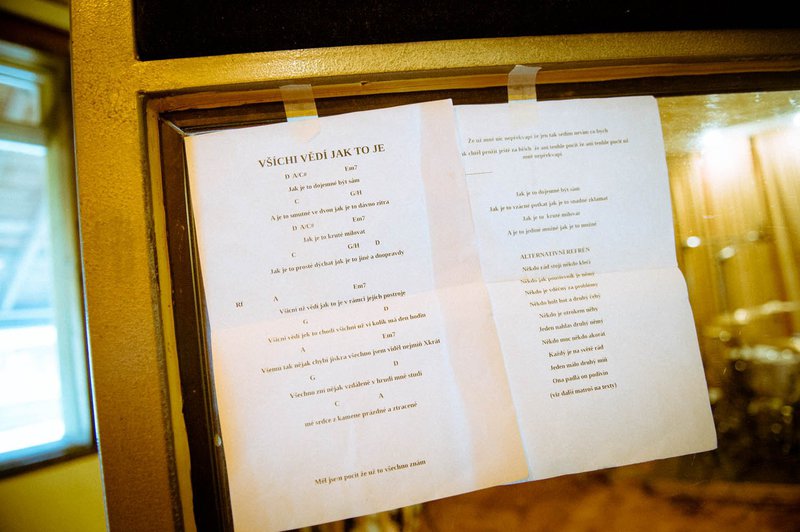 VŠÍCHI VĚDÍ JAK TO JE
D A/C# Em7
Jak je to dojemné být sám
C G/H
A je to smutné ve dvou jak je to dávno zítra
D A/C# Em7
Jak je to kruté milovat
C G/H D
Jak je to prosté dýchat jak je to jiné a doopravdy
Rf A Em7
Všicni už vědí jak to je v rámci jejich postroje
G D
Všicni vědí jek to chodí všichni už ví kolik má den hodin
A Em7
Všemu tak nějak chybí jiskra všechno jsem viděl nejmíň Xkrát
G D
Všechno zní nějak vzdáleně v hrudi mně studí
C A
mé srdce z kamene prázdné a ztracené
Měl jsem pocit že už to všechno znám
Že už mně nic nepřekvapí že jen tak sedím nevím co bych
jak chtěl prožít ještě na břích že ani tenhle pocit že ani tenhle pocit už
mně nepřekvapí
Jak je to dojemné být sám
Jak je to vzácné potkat jak je to snadné zklamat
Jak je to kruté milovat
A je to jedině možné jak je to možné
ALTERNATIVNÍ REFRÉN
Někdo rád stojí někdo klečí
Někdo jak poustevník je němý
Někdo je vděčný za problémy
Někdo holt hot a druhý čehý
Někdo je otrokem něhy
Jeden nahlas druhý němý
Někdo moc někdo akorát
Každý je na světě rád
Jeden málo druhý míň
Ona padlá on podivín
(viz další matroš na texty)